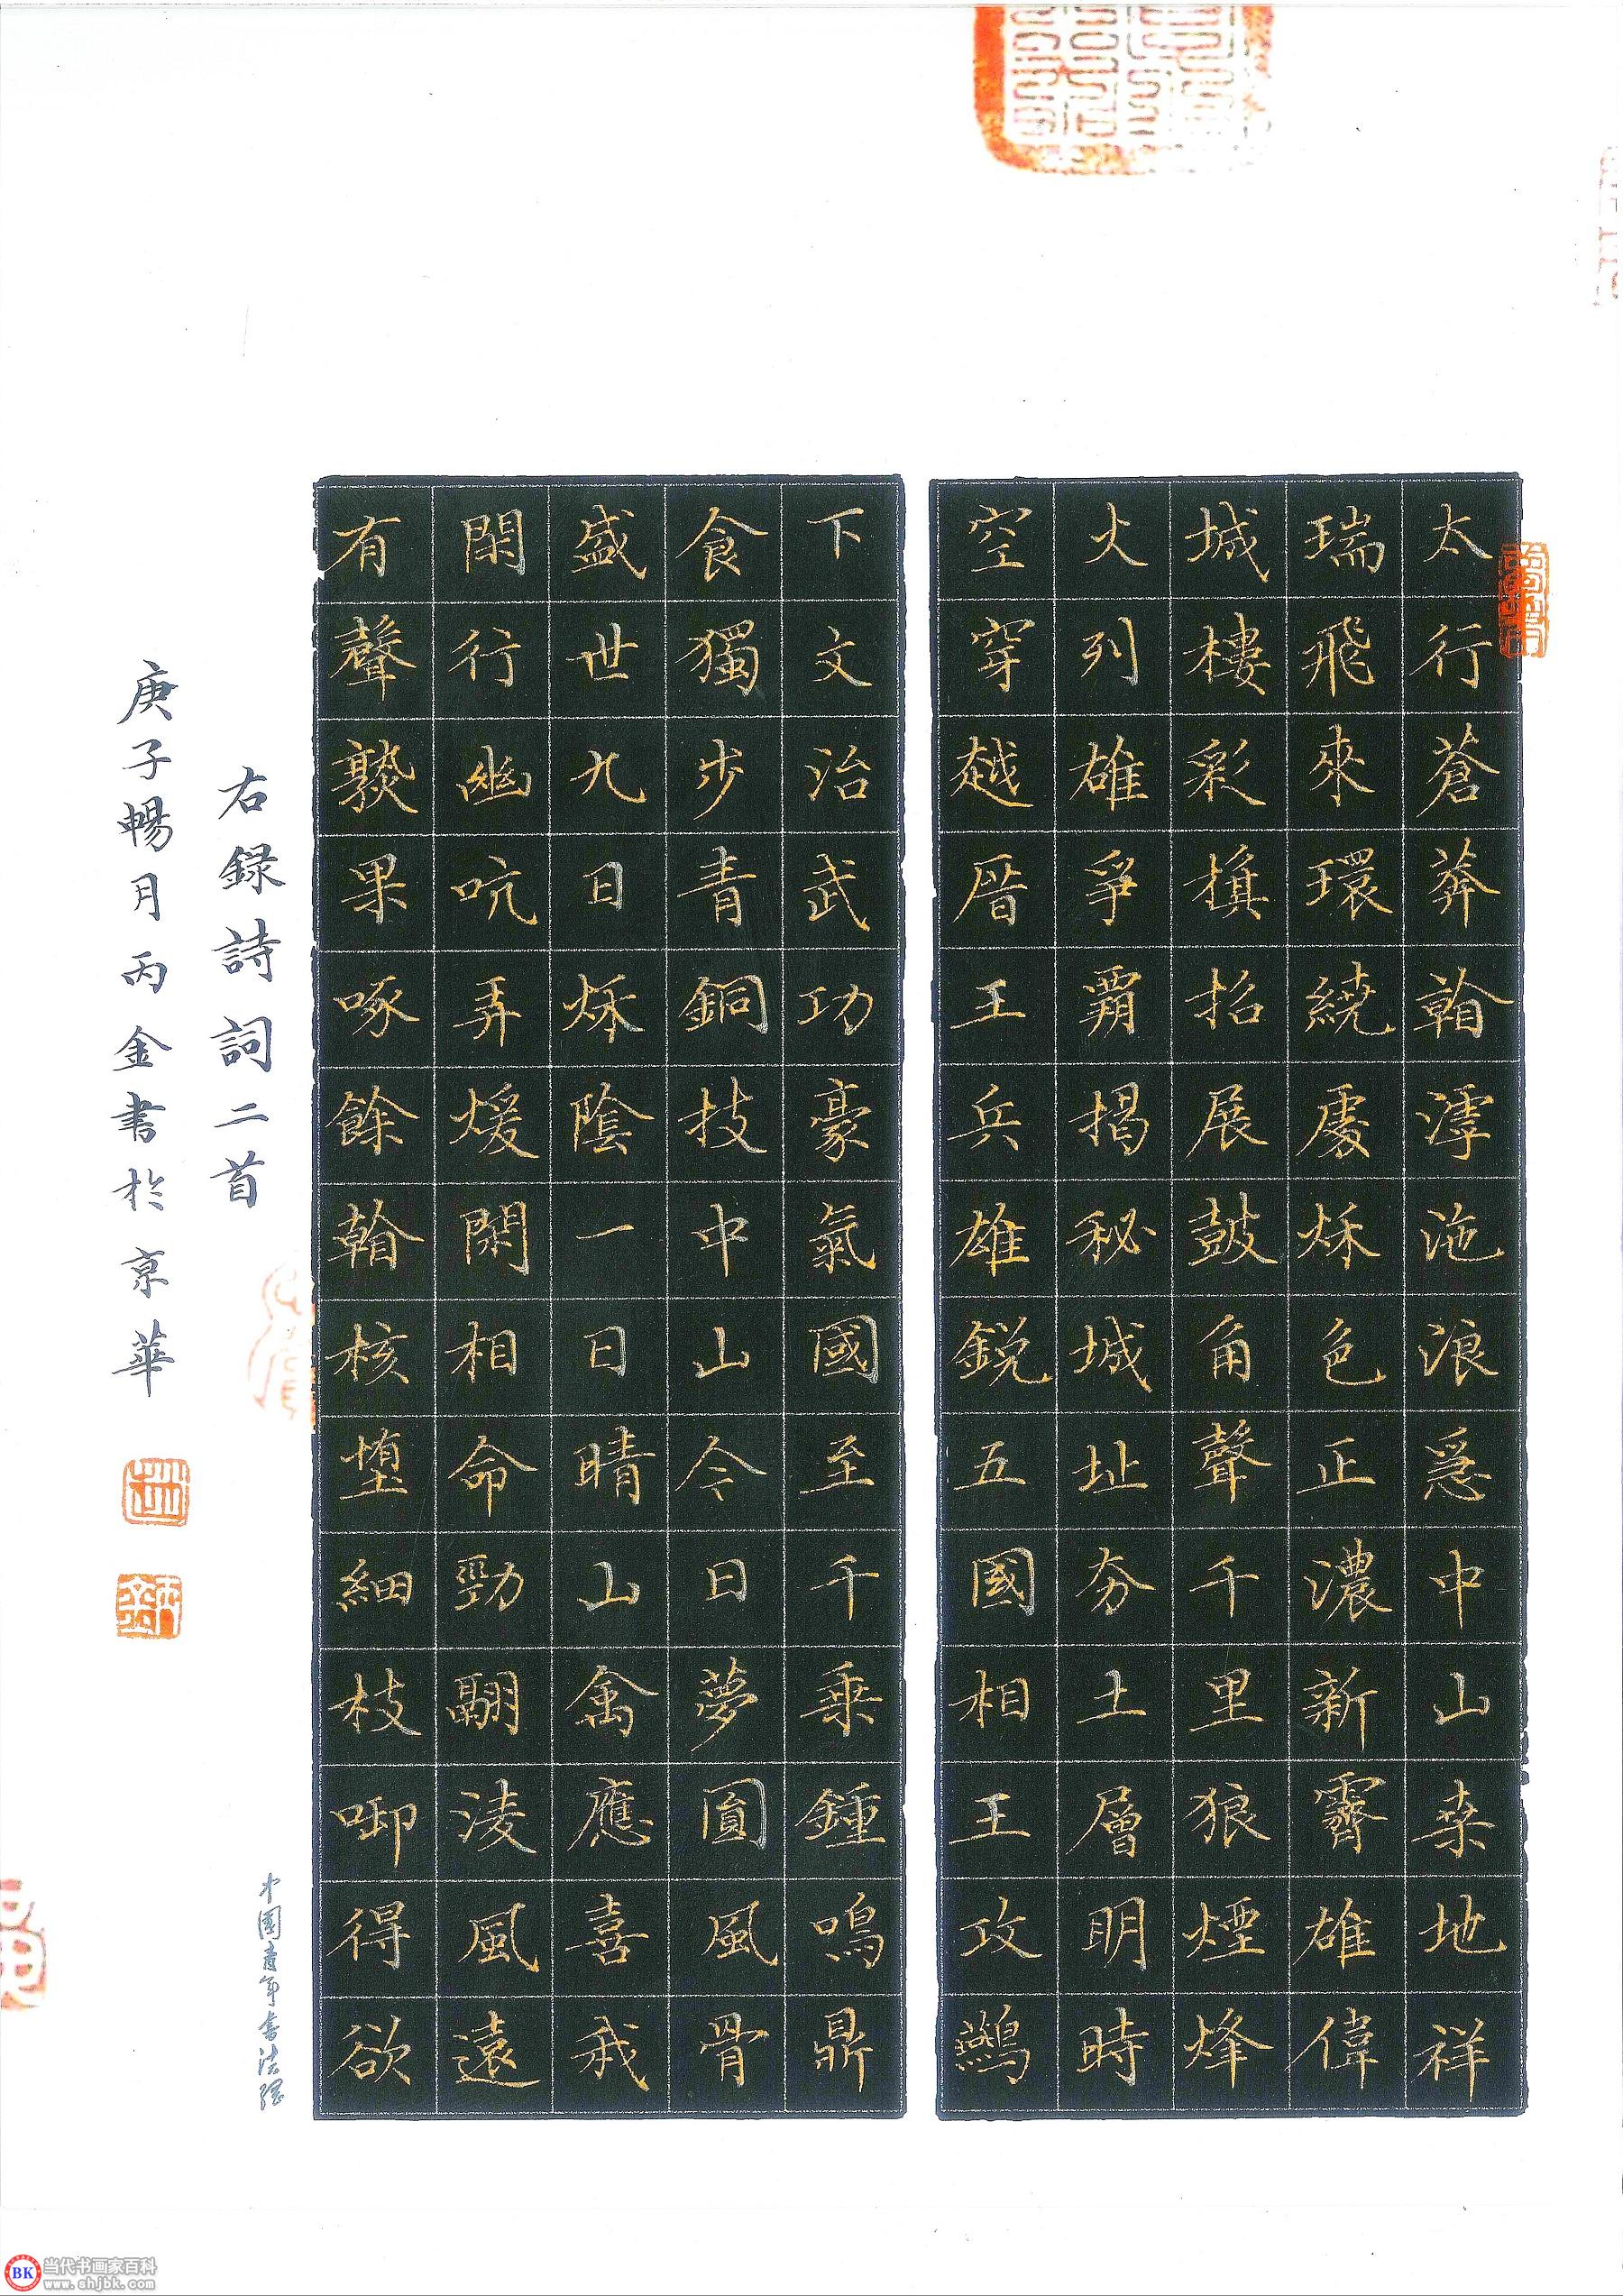 太行蒼莽翰滹沲浪爲中山桒地祥
瑞飛來環繞處秌色正濃新霽雄偉
城樓彩旗招展鼓角聲千里狼煙烽
火列雄爭霸揭秘城址夯土層明時
空穿越厝王兵雄鋭五國相王攻鷰
下文治武功豪氣國至千乗鍾鳴鼎
食獨步青銅技中山今日夢圓風骨
盛世九日秌陰一日晴山禽應喜我
閑行幽吭弄煖閑相命勁翮淩風遠
有聲熟果啄餘翰核堕細枝啣得欲
右録詩詞二首
庚子暢月丙金書於京華
中國青年書法
当代书画家百科
BK www.shjbk.com